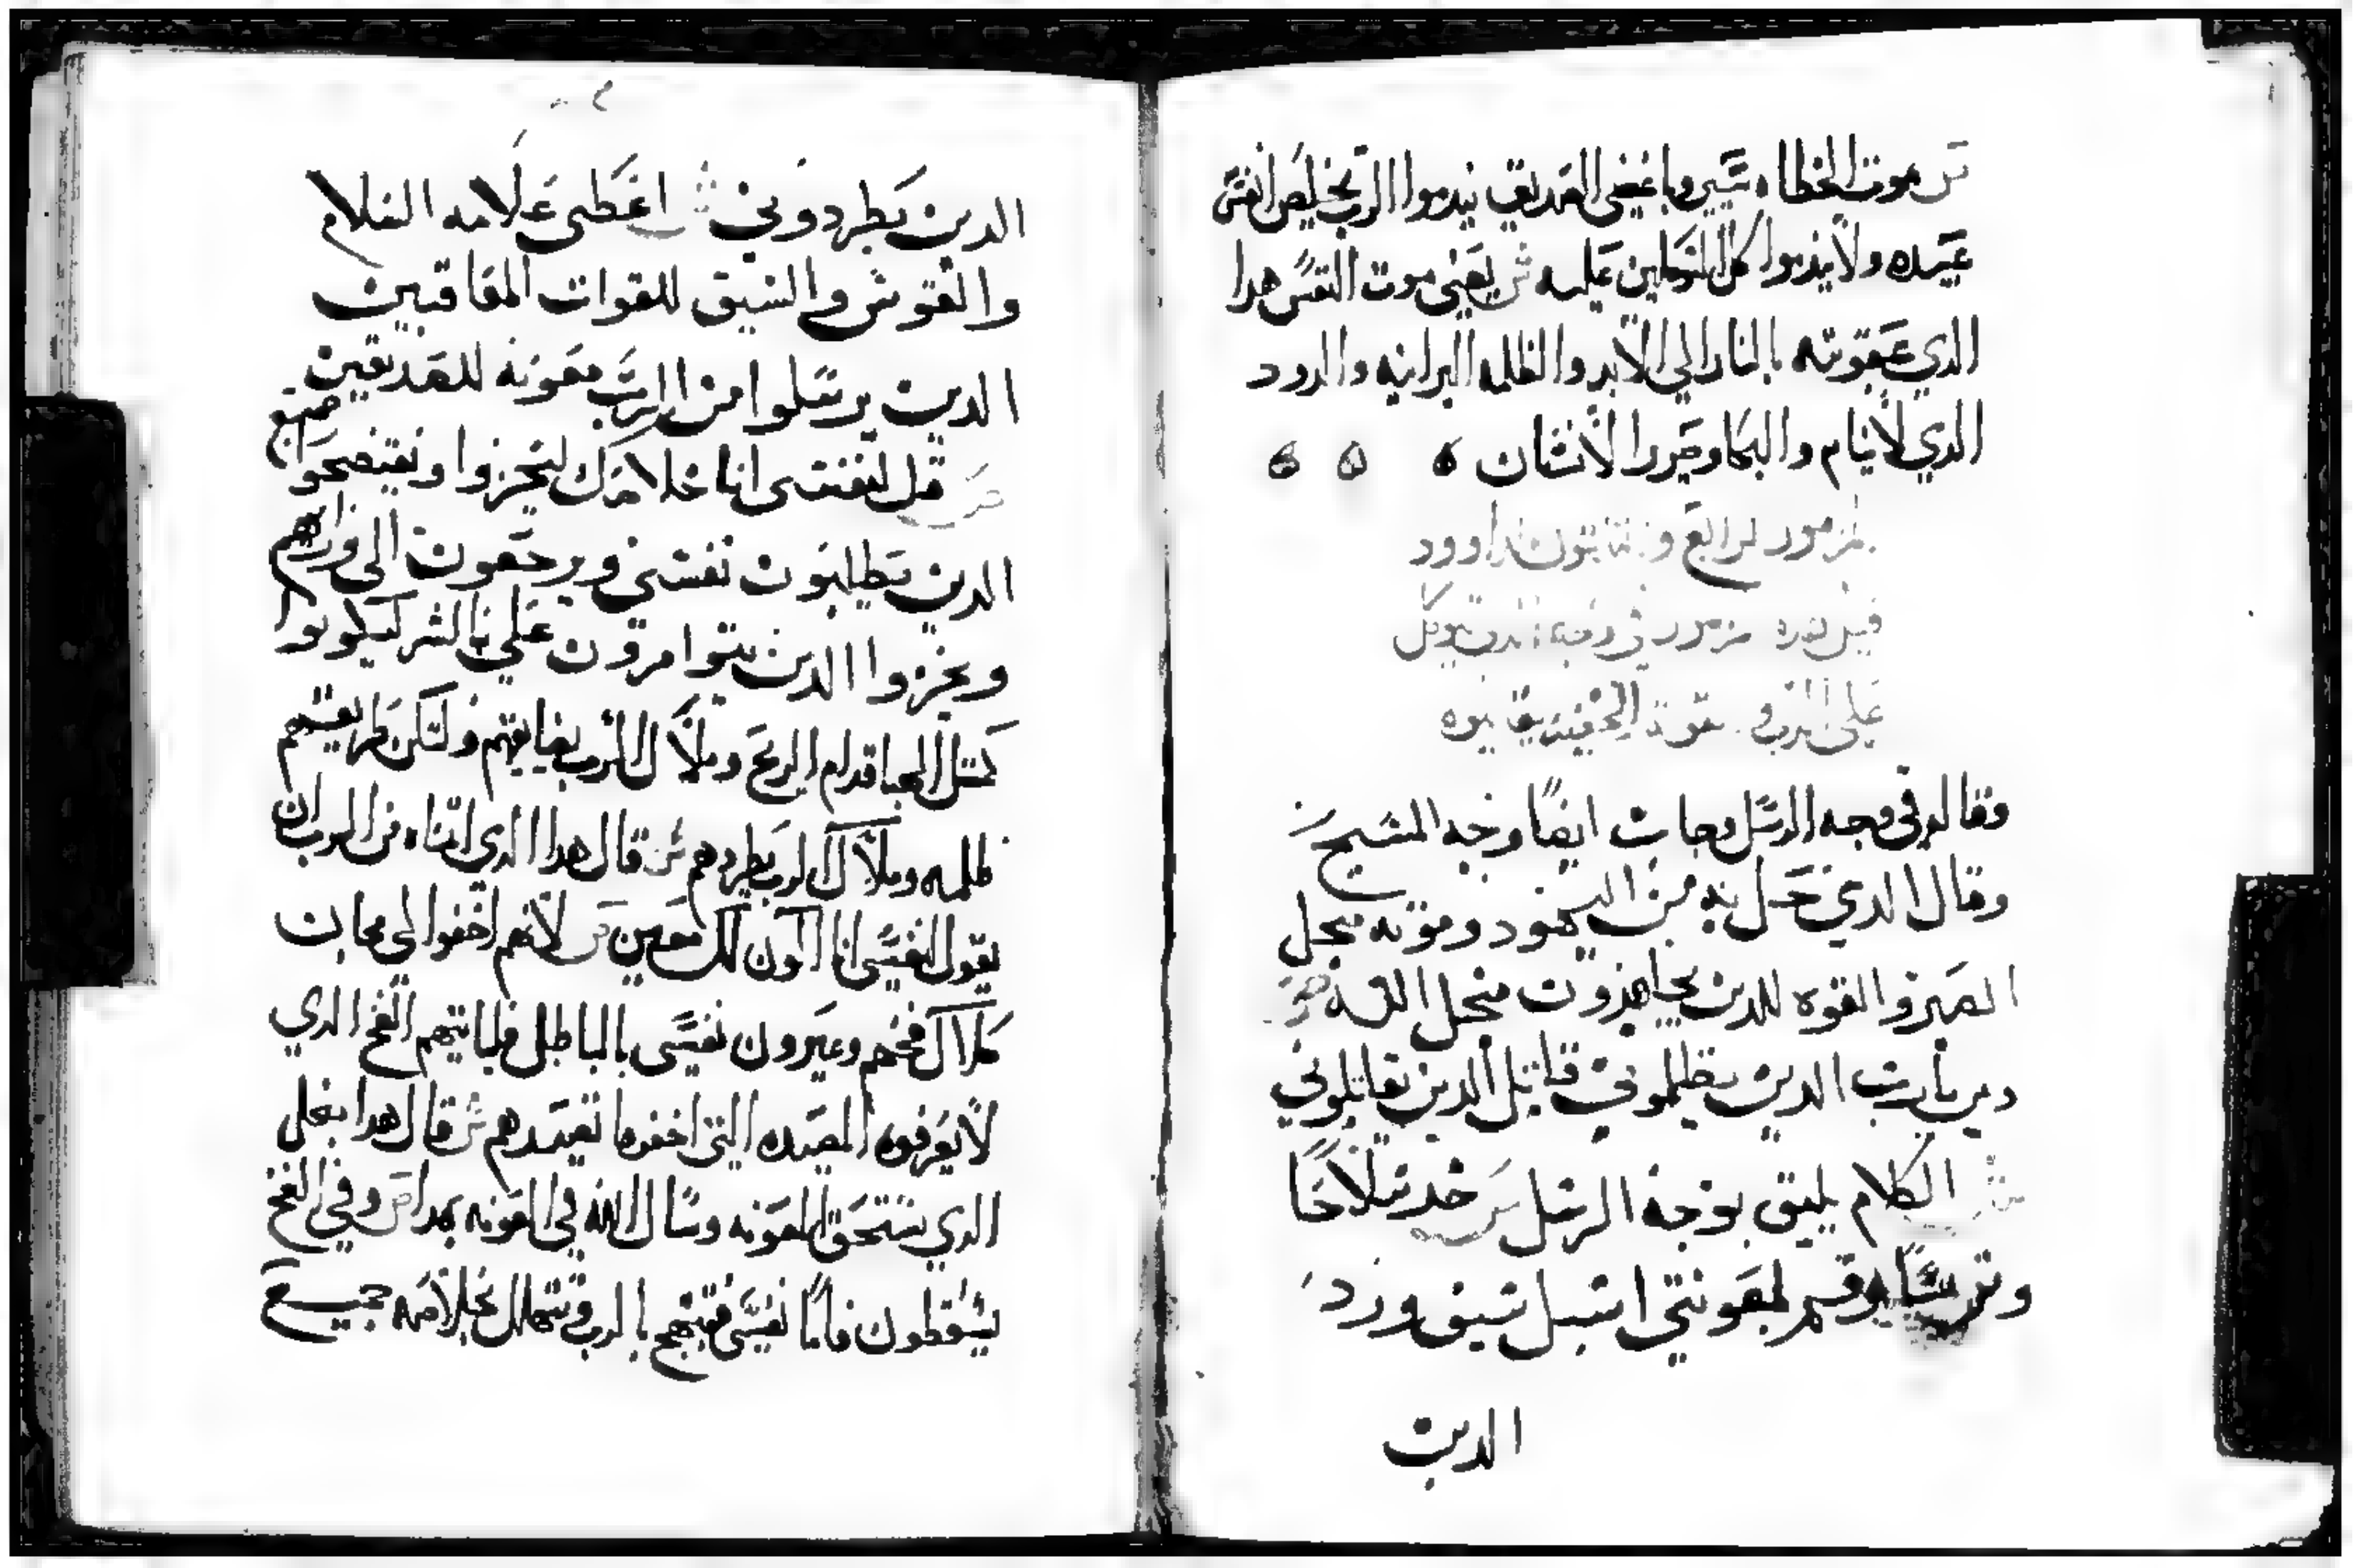 موت الخطاه شير وباغضى الصديق يندموا الرب يخلص انفس
عبيده ولا يندموا كل المتوكلين عليه ش يعني موت النفس هدا
الدي عقوبته بالنار الى الابد والظلمه البرانيه والدود
الدي لا ينام والبكا وصرير الاسنان
المزمور الرابع و لداوود
قيل مزمور في وجه
على الرب
وقالو في وجه الرسل وجات ايضا وجه المسيح
وقال الدي حل به من اليهود وموته منجل
الصبر والقوه للدين يجاهدون منجل الله
دين يارب الدين يظلموني قاتل الدين يقاتلوني
ش الكلام يليق بوجه الرسل خد سلاحا
وترسا وقم لمعونتي استل سيف ورد
الدين
الدين يطردوني ش اعطى علامه السلام
والقوس والسيف للقوات المعاقبين
الدين يرسلوا من الرب معونه للصديقين
قل لنفسى انا خلاصك ليخزوا ويفتضحوا جميع
الدين يطلبون نفسي ويرجعون الى وراهم
ويخزوا الدين يتوامرون علي بالشر ليكونوا
كمتل الهبا قدام الريح وملاك الرب يضايقهم ولتكن طريقهم
ظلمه وملاك الرب يطردهم ش قال هدا الدي التماه من الرب ان
يقول لنفسى انا اكون لك معين لانهم اخفوا لي مجان
هلاك فخهم وعيرون نفسى بالباطل فلياتيهم الفخ الدي
لا يعرفوه المصيده التي اخفوها تصيدهم ش قال هدا بفعل
الدي يستحق المعونه وسال الله في المعونه بهدا ص وفي الفخ
يسقطون فاما نفسى فتبتهج بالرب وتتهلل بخلاصه جميع